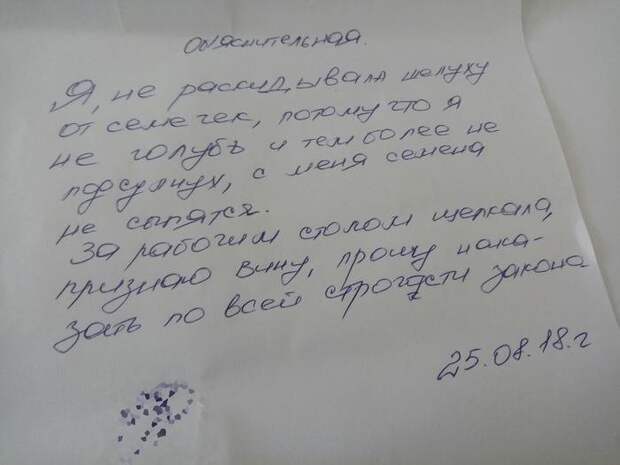 Объяснительная.
Я, не раскидывала шелуху
от семечек, потому что я
не голубь и тем более не
подсолнух, с меня семена
не сыпятся.
За рабочим столом щелкала,
признаю вину, прошу нака-
зать по всей строгости закона
25.08.18.г